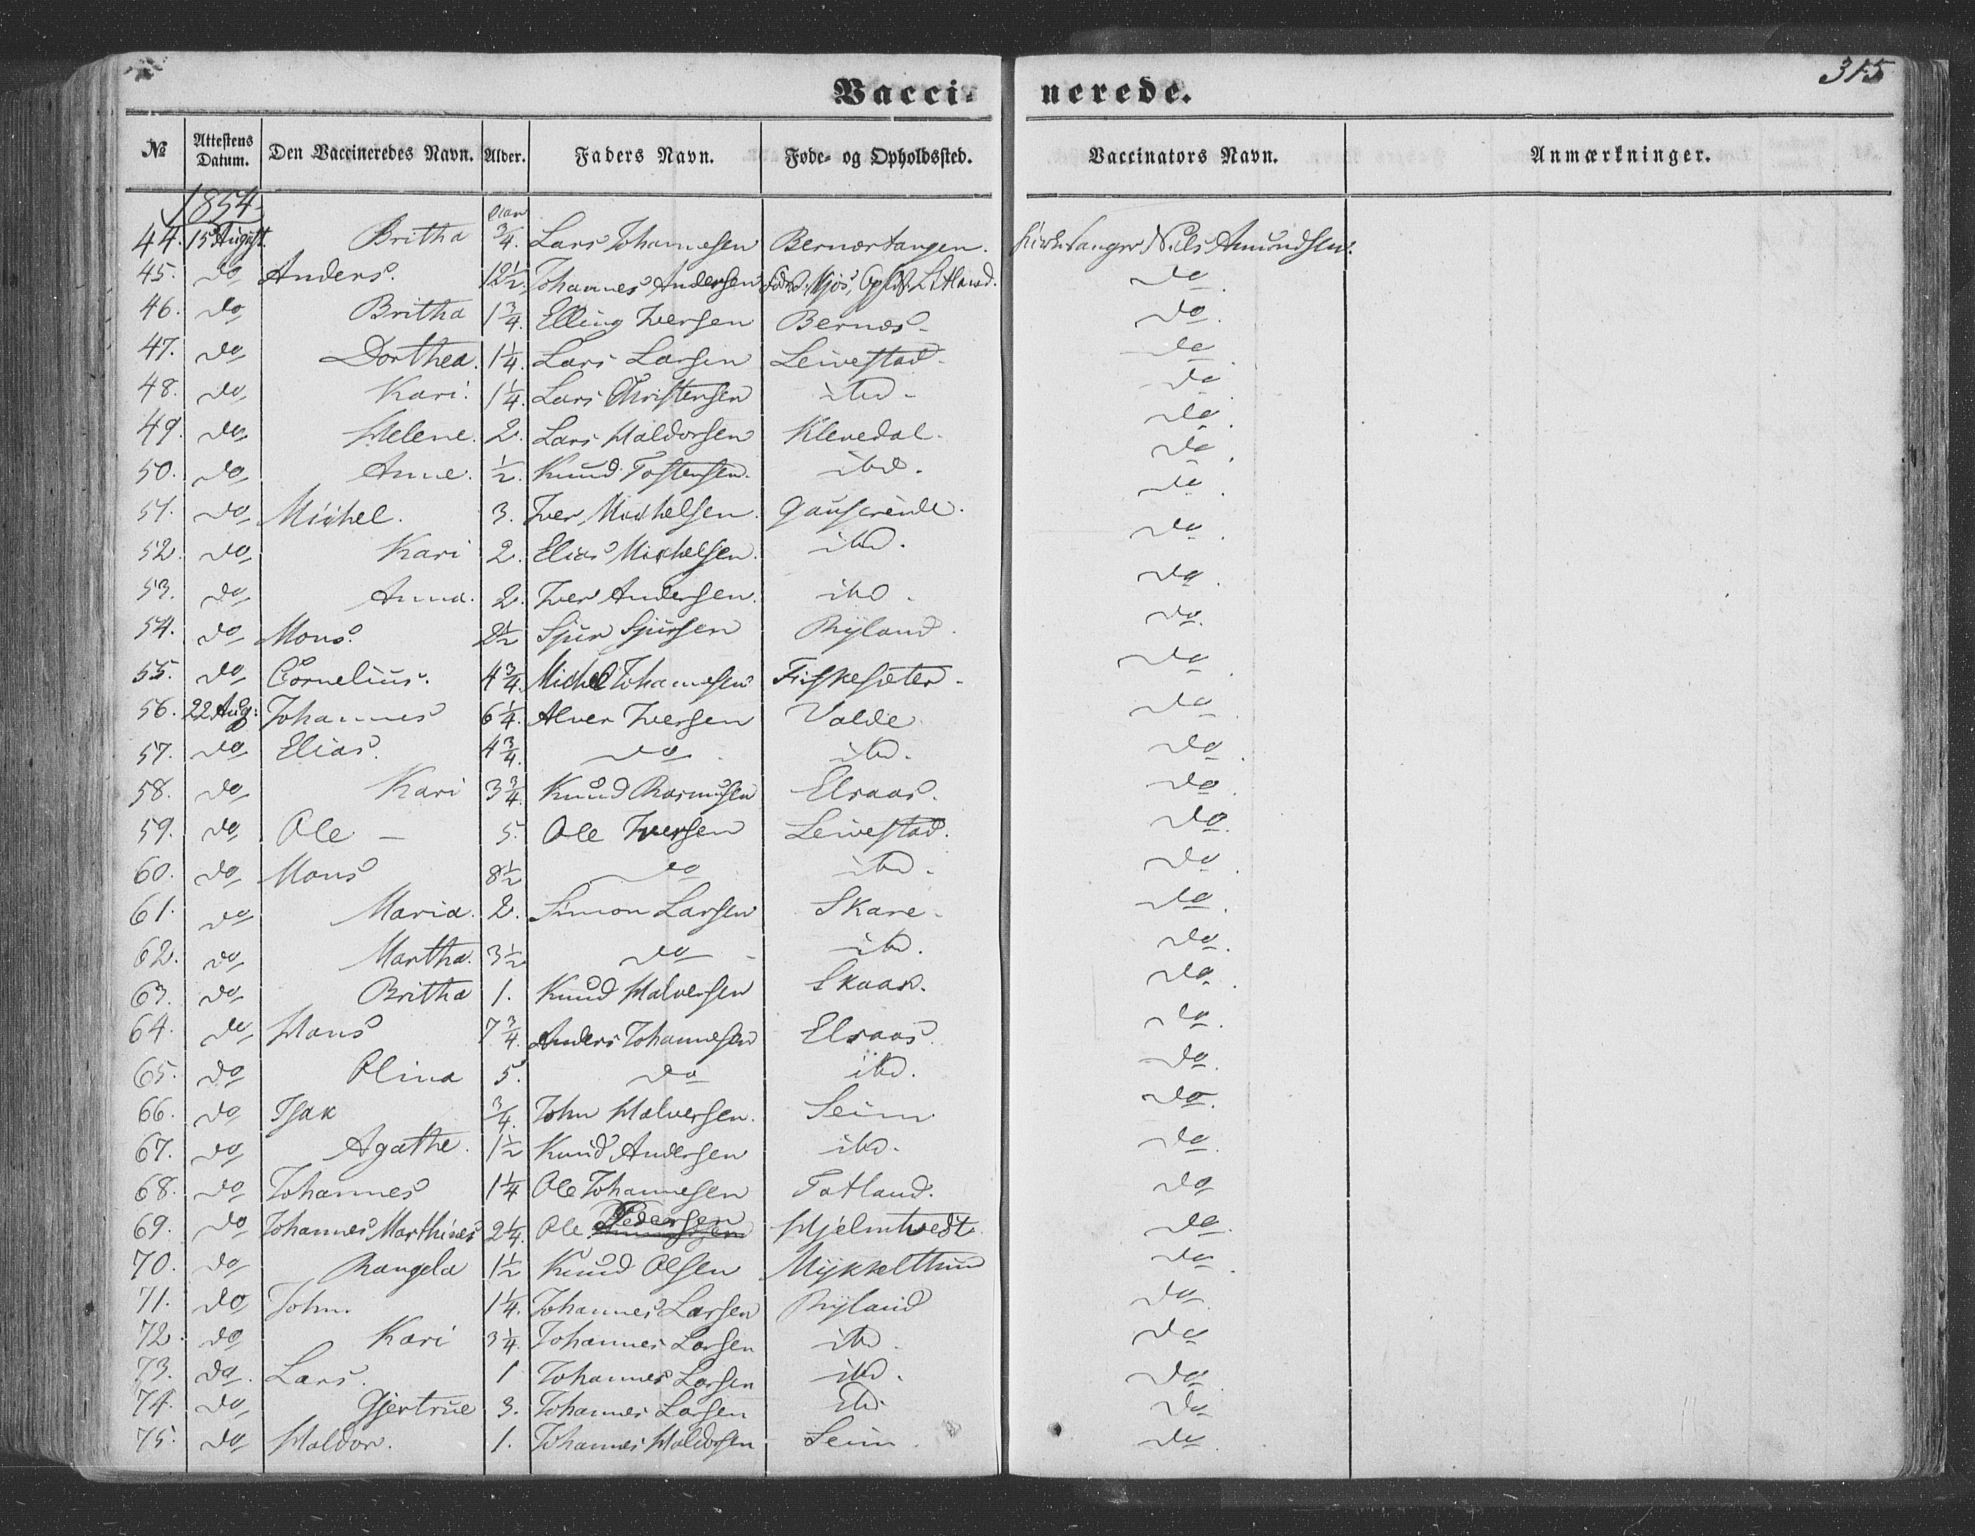 315
Vacci- nerede.
№ Attestens Datum. Den Vaccineredes Navn. Alder. Faders Navn. Føde- og Opholdssted. Vaccinators Navn. Anmærkninger.
1854
44. 15 August. Britha 3/4. Lars Johannesen Bernæstangen. Kirkesanger Nils Amundsen.
45. do Anders. 12 1/2. Johannes Andersen Mjøs, Litland. do
46. do Britha 1 3/4. Elling Iversen Bernæs do
47. do Dorthea. 1 1/4. Lars Larsen Leivestad do
48. do Kari. 1 1/4. Lars Christensen ibd. do
49. do Helene. 2. Lars Haldorsen Klevedal. do
50. do Anne. 1/2. Knud Tostensen. ibd. do
51. do Michel. 3. Iver Michelsen. do
52. do Kari 2. Elias Michelsen. ibd. do
53. do Anna. 2. Iver Andersen. ibd. do
54. do Mons. 2 1/2 Sjur Sjursen Ryland. do
55. do Cornelius. 4 3/4. Michel Johannesen Fiskesæter. do
56. 22 Aug: Johannes 6 1/4. Alver Iversen Valde do
57. do Elias. 4 3/4. do ibd. do
58. do Kari 3 3/4. Knud Rasmusen Elsaas. do
59. do Ole – 5. Ole Iversen Leivestad. do
60. do Mons 8 1/2 do ibd. do
61. do Maria. 2. Simon Larsen Skare. do
62. do Martha. 3 1/2 do ibd. do
63. do Britha 1. Knud Halversen Skaar. do
64. do Hans 7 3/4. Anders Johannesen Elsaas. do
65. do Olina 5. do ibd. do
66. do Isak 3/4. John Halversen. Seim. do
67. do Agathe. 1 1/2 Knud Andersen ibd. do
68. do Johannes 1 1/4 Ole Johannesen Totland. do
69. do Johannes Marthines 2 1/4. Ole Pedersen Hjelmtvedt. do
70. do Rangela 1 1/2 Knud Olsen Mykkelthun do
71. do John. 1 1/4. Johannes Larsen Ryland do
72. do Kari 3 1/4. Johannes Larsen ibd. do
73. do. Lars. 1 Johannes Larsen ibd. do
74. do Gjertrue 3. Johannes Larsen do
75. do Haldor. 1. Johannes Haldorsen Seim. do